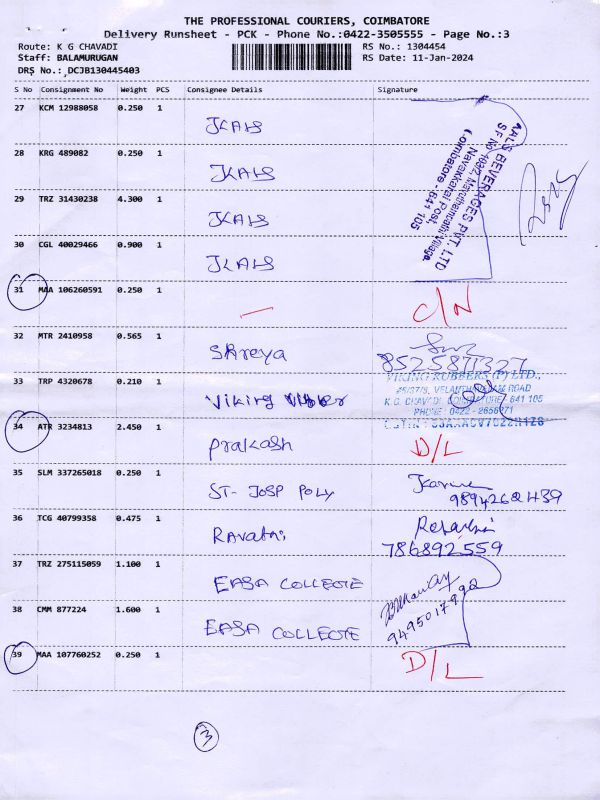 THE PROFESSIONAL COURIERS, COIMBATORE
Delivery Runsheet - PCK - Phone No.:0422-3505555 - Page No.:3
Route: K G CHAVADI RS No.: 1304454
Staff: BALAMURUGAN RS Date: 11-Jan-2024
DRS No.: DCJB130445403
S No Consignment No Weight PCS Consignee Details Signature
27 KCM 12988058 0.250 1 JKALS
28 KRG 489082 0.250 1 JKALS
29 TRZ 31430238 4.300 1 JKALS
30 CGL 40029466 0.900 1 JKALS
BEVERAGES PVT. LTD
Navakkarai Post,
Coimbatore - 641 105
31 MAA 106260591 0.250 1 — C/N
32 MTR 2410958 0.565 1 Shreya
33 TRP 4320678 0.210 1 Viking
VIKING RUBBERS (P) LTD.,
K.G. CHAVADI, COIMBATORE - 641 105
PHONE : 0422 - 2656271
34 ATR 3234813 2.450 1 Prakash D/L
35 SLM 337265018 0.250 1 ST- JOSP POLY
36 TCG 40799358 0.475 1
786892559
37 TRZ 275115059 1.100 1 EASA COLLEGE
38 CMM 877224 1.600 1 EASA COLLEGE
39 MAA 107760252 0.250 1 D/L
3